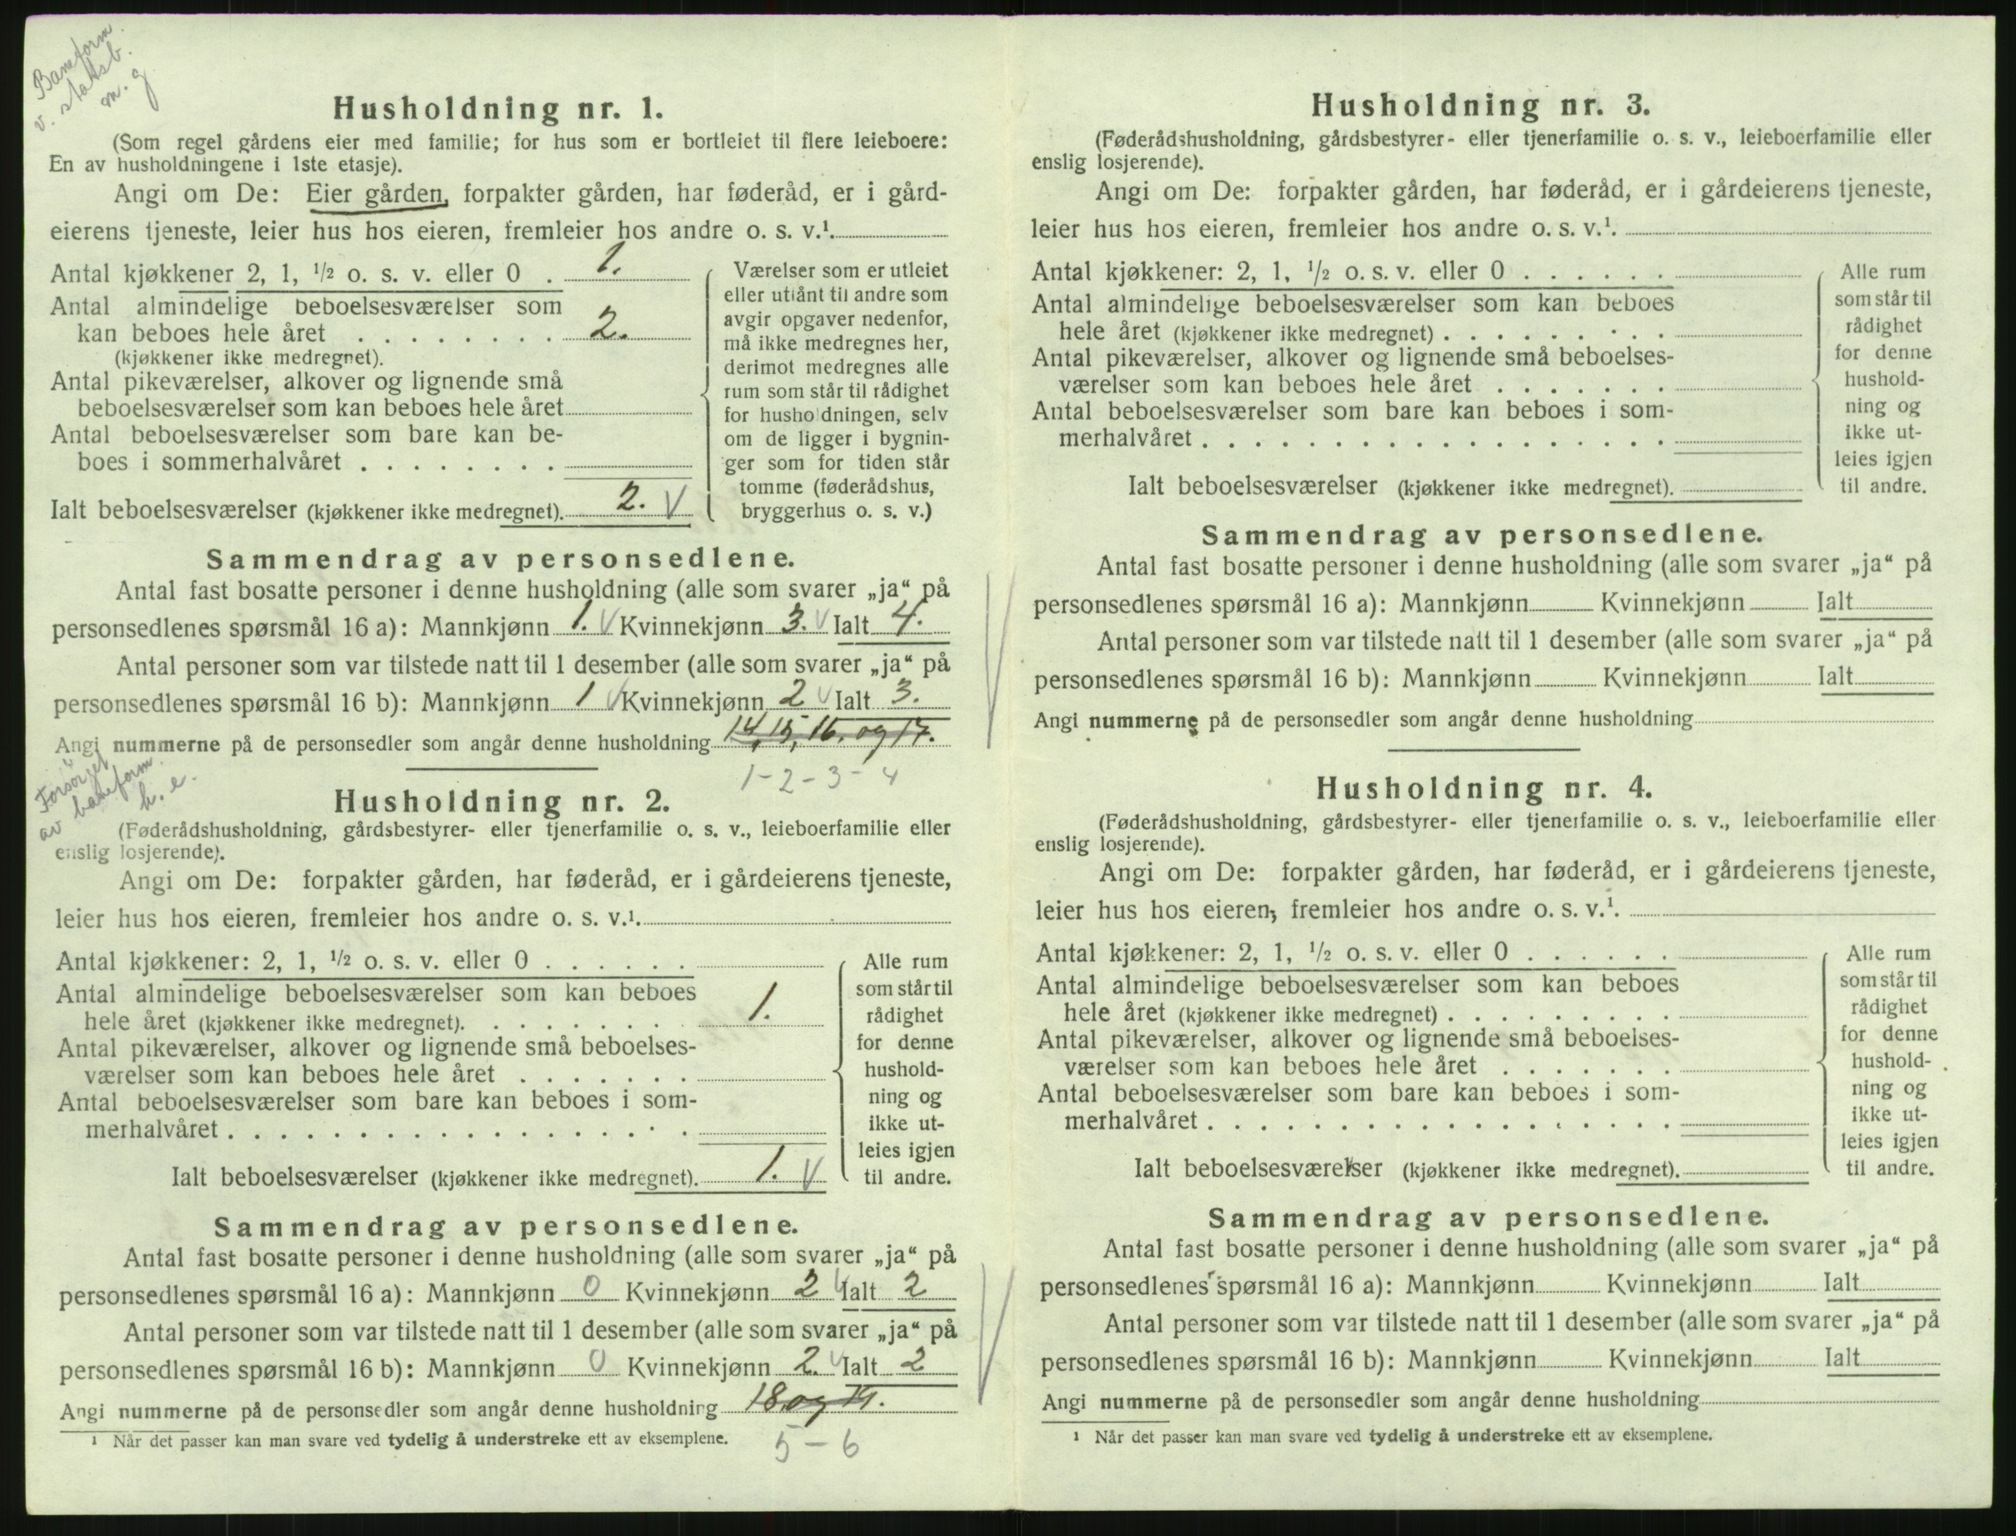 Baneform.
v. statsb.
m. g
Husholdning nr. 1.
(Som regel gårdens eier med familie; for hus som er bortleiet til flere leieboere:
En av husholdningene i 1ste etasje).
Angi om De: Eier gården, forpakter gården, har føderåd, er i gård-
eierens tjeneste, leier hus hos eieren, fremleier hos andre o. s. v.¹.
Antal kjøkkener 2, 1, ½ o. s. v. eller 0 . 1.
Antal almindelige beboelsesværelser som
kan beboes hele året . . . . . . . . 2.
(kjøkkener ikke medregnet).
Antal pikeværelser, alkover og lignende små
beboelsesværelser som kan beboes hele året
Antal beboelsesværelser som bare kan be-
boes i sommerhalvåret . . . . . . . .
Ialt beboelsesværelser (kjøkkener ikke medregnet). 2. V
Værelser som er utleiet
eller utlånt til andre som
avgir opgaver nedenfor,
må ikke medregnes her,
derimot medregnes alle
rum som står til rådighet
for husholdningen, selv
om de ligger i bygnin-
ger som for tiden står
tomme (føderådshus,
bryggerhus o. s. v.)
Sammendrag av personsedlene.
Antal fast bosatte personer i denne husholdning (alle som svarer „ja“ på
personsedlenes spørsmål 16 a): Mannkjønn 1. V Kvinnekjønn 3. V Ialt 4.
Antal personer som var tilstede natt til 1 desember (alle som svarer „ja“ på
personsedlenes spørsmål 16 b): Mannkjønn 1 V Kvinnekjønn 2 V Ialt 3.
Angi nummerne på de personsedler som angår denne husholdning 14, 15, 16. og 17.
1 - 2 - 3 - 4
Forsørget
av baneform.
h. e.
Husholdning nr. 2.
(Føderådshusholdning, gårdsbestyrer- eller tjenerfamilie o. s. v., leieboerfamilie eller
enslig losjerende).
Angi om De: forpakter gården, har føderåd, er i gårdeierens tjeneste,
leier hus hos eieren, fremleier hos andre o. s. v.¹.
Antal kjøkkener: 2, 1, ½ o. s. v. eller 0 . . . . . .
Antal almindelige beboelsesværelser som kan beboes
hele året (kjøkkener ikke medregnet). . . . . . . . . 1.
Antal pikeværelser, alkover og lignende små beboelses-
værelser som kan beboes hele året . . . . . . .
Antal beboelsesværelser som bare kan beboes i som-
merhalvåret . . . . . . . . . . . . . . . . . .
Ialt beboelsesværelser (kjøkkener ikke medregnet). 1. V
Alle rum
som står til
rådighet
for denne
hushold-
ning og
ikke ut-
leies igjen
til andre.
Sammendrag av personsedlene.
Antal fast bosatte personer i denne husholdning (alle som svarer „ja“ på
personsedlenes spørsmål 16 a): Mannkjønn 0 Kvinnekjønn 2 V Ialt 2
Antal personer som var tilstede natt til 1 desember (alle som svarer „ja“ på
personsedlenes spørsmål 16 b): Mannkjønn 0 Kvinnekjønn 2. V Ialt 2
Angi nummerne på de personsedler som angår denne husholdning 18. og 19.
¹ Når det passer kan man svare ved tydelig å understreke ett av eksemplene.
5 - 6
Husholdning nr. 3.
(Føderådshusholdning, gårdsbestyrer- eller tjenerfamilie o. s. v., leieboerfamilie eller
enslig losjerende).
Angi om De: forpakter gården, har føderåd, er i gårdeierens tjeneste,
leier hus hos eieren, fremleier hos andre o. s. v.¹.
Antal kjøkkener: 2, 1, ½ o. s. v. eller 0 . . . . . .
Antal almindelige beboelsesværelser som kan beboes
hele året (kjøkkener ikke medregnet) . . . . . . . . .
Antal pikeværelser, alkover og lignende små beboelses-
værelser som kan beboes hele året . . . . . . .
Antal beboelsesværelser som bare kan beboes i som-
merhalvåret . . . . . . . . . . . . . . . . . .
Ialt beboelsesværelser (kjøkkener ikke medregnet).
Alle rum
som står til
rådighet
for denne
hushold-
ning og
ikke ut-
leies igjen
til andre.
Sammendrag av personsedlene.
Antal fast bosatte personer i denne husholdning (alle som svarer „ja“ på
personsedlenes spørsmål 16 a): Mannkjønn Kvinnekjønn Ialt
Antal personer som var tilstede natt til 1 desember (alle som svarer „ja“ på
personsedlenes spørsmål 16 b): Mannkjønn Kvinnekjønn Ialt
Angi nummerne på de personsedler som angår denne husholdning
Husholdning nr. 4.
(Føderådshusholdning, gårdsbestyrer- eller tjenerfamilie o. s. v., leieboerfamilie eller
enslig losjerende).
Angi om De: forpakter gården, har føderåd, er i gårdeierens tjeneste,
leier hus hos eieren, fremleier hos andre o. s. v.¹.
Antal kjøkkener: 2, 1, ½ o. s. v. eller 0 . . . . . .
Antal almindelige beboelsesværelser som kan beboes
hele året (kjøkkener ikke medregnet) . . . . . . . . .
Antal pikeværelser, alkover og lignende små beboelses-
værelser som kan beboes hele året . . . . . . .
Antal beboelsesværelser som bare kan beboes i som-
merhalvåret . . . . . . . . . . . . . . . . . .
Ialt beboelsesværelser (kjøkkener ikke medregnet).
Alle rum
som står til
rådighet
for denne
hushold-
ning og
ikke ut-
leies igjen
til andre.
Sammendrag av personsedlene.
Antal fast bosatte personer i denne husholdning (alle som svarer „ja“ på
personsedlenes spørsmål 16 a): Mannkjønn Kvinnekjønn Ialt
Antal personer som var tilstede natt til 1 desember (alle som svarer „ja“ på
personsedlenes spørsmål 16 b): Mannkjønn Kvinnekjønn Ialt
Angi nummerne på de personsedler som angår denne husholdning
¹ Når det passer kan man svare ved tydelig å understreke ett av eksemplene.